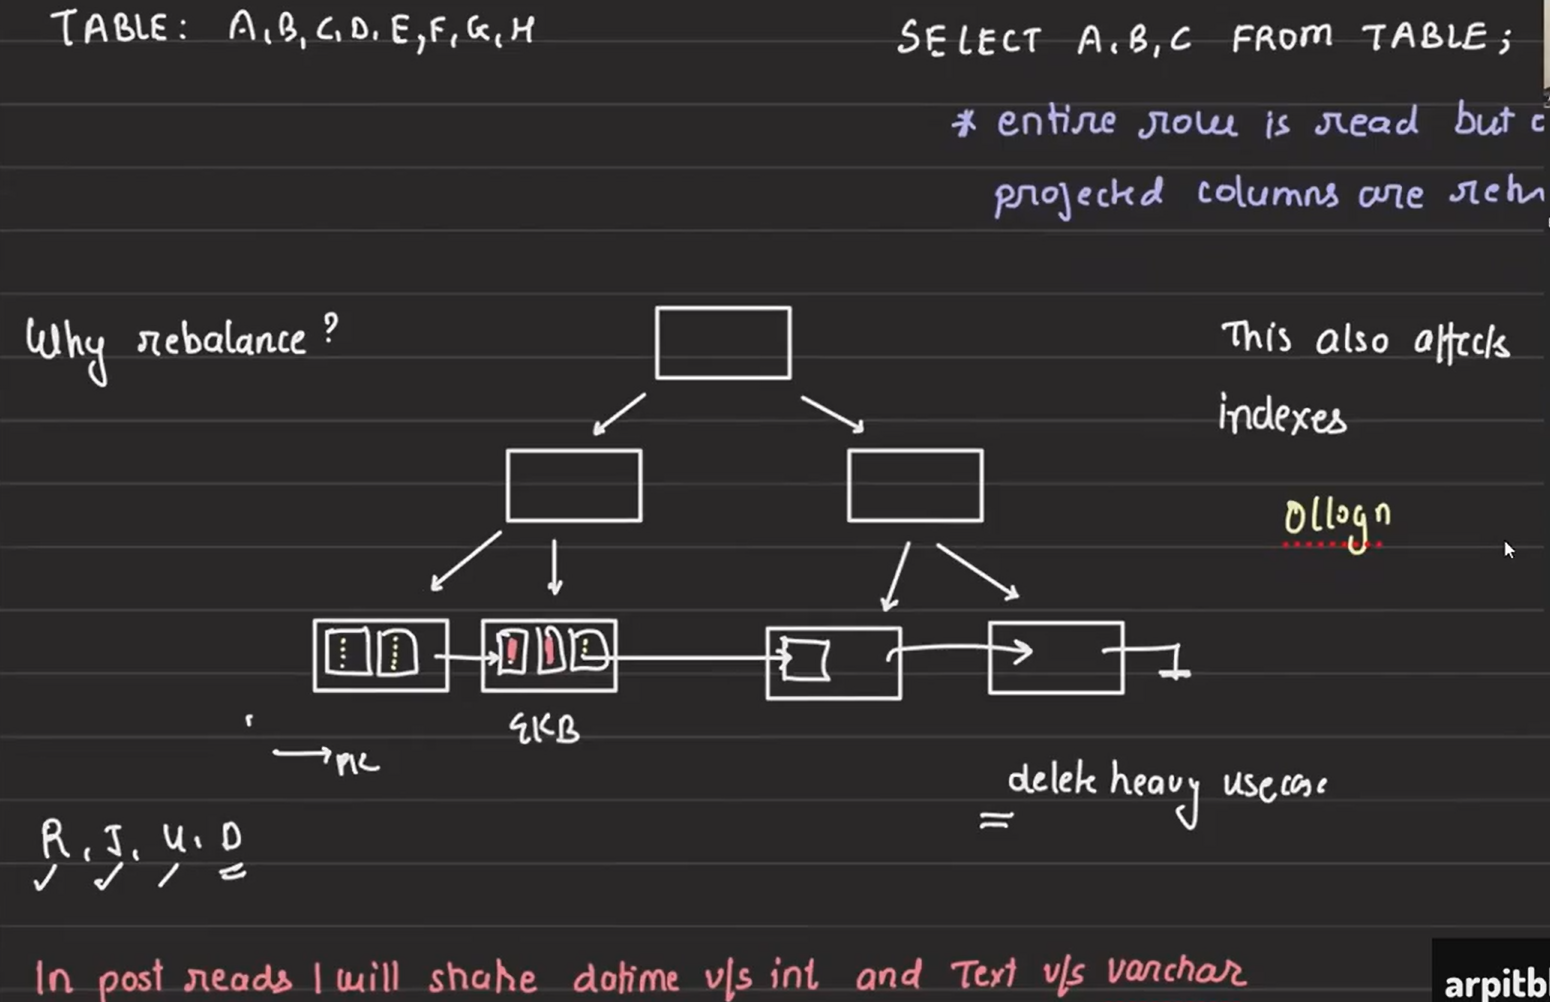 TABLE: A, B, C, D, E, F, G, H
SELECT A, B, C FROM TABLE;
* entire row is read but
projected columns are
Why rebalance?
This also affects
indexes
O(logn
4KB
delete heavy usecase
=
R, I, U, D
In post reads I will share datime v/s int and Text v/s varchar
arpitb